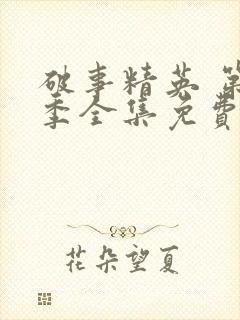 破事精英 第
季全集免费
花朵望夏